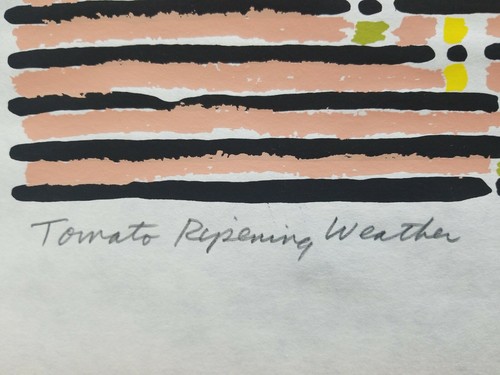 Tomato Ripening Weather